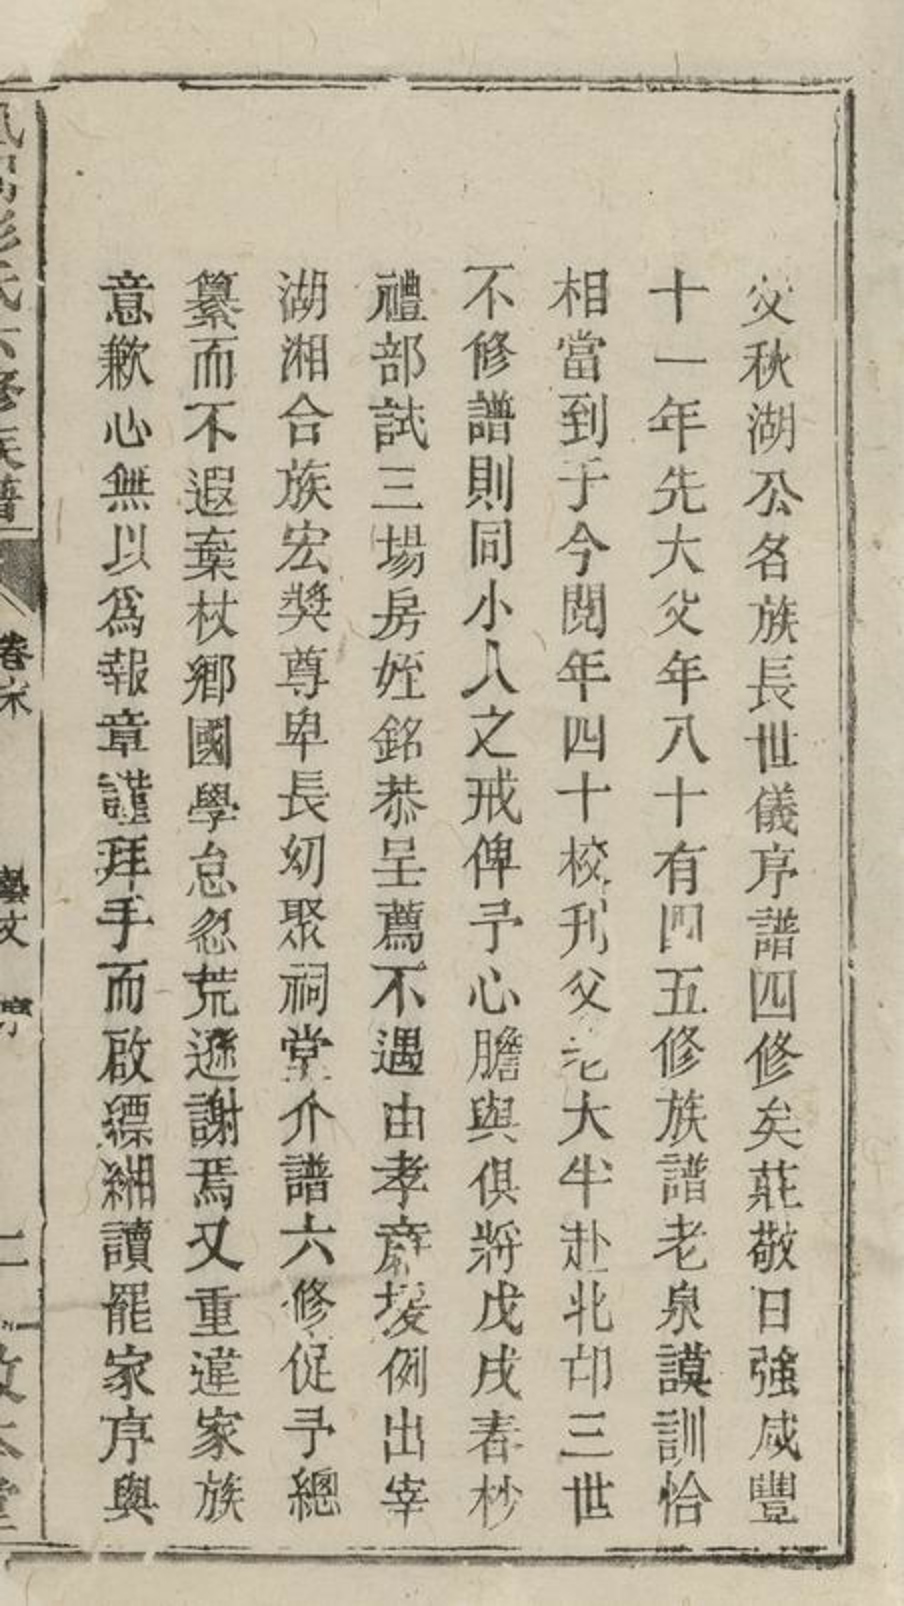 父秋湖公名族長世儀序譜四修矣莊敬日強咸豐
十一年先大父年八十有四五修族譜老泉謨訓恰
相當到于今閱年四十校刋父老大半赴北邙三世
不修譜則同小人之戒俾予心膽與俱將戊戌春杪
禮部試三場房姪銘恭呈薦不遇由孝廉援例出宰
湖湘合族宏獎尊卑長幼聚祠堂介譜六修促予總
纂而不遐棄杖鄉國學怠忽荒遜謝焉又重違家族
意歉心無以爲報章謹拜手而啟縹緗讀罷家序與
彭氏六修族譜
卷末
藝文 序
二
敦本堂